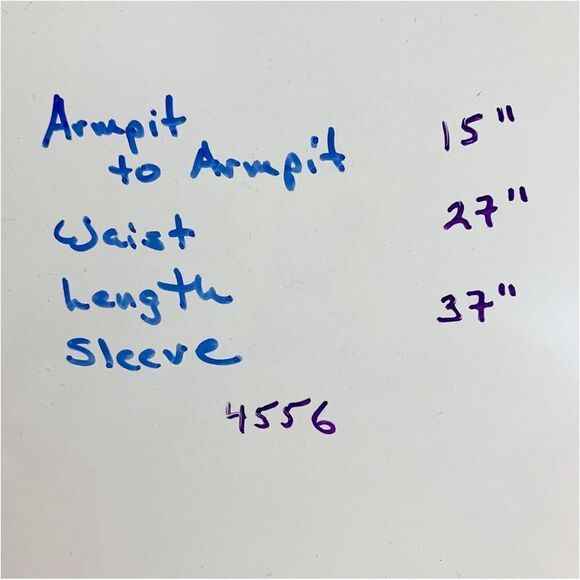 Armpit
to Armpit 15"
Waist 27"
Length 37"
Sleeve
4556